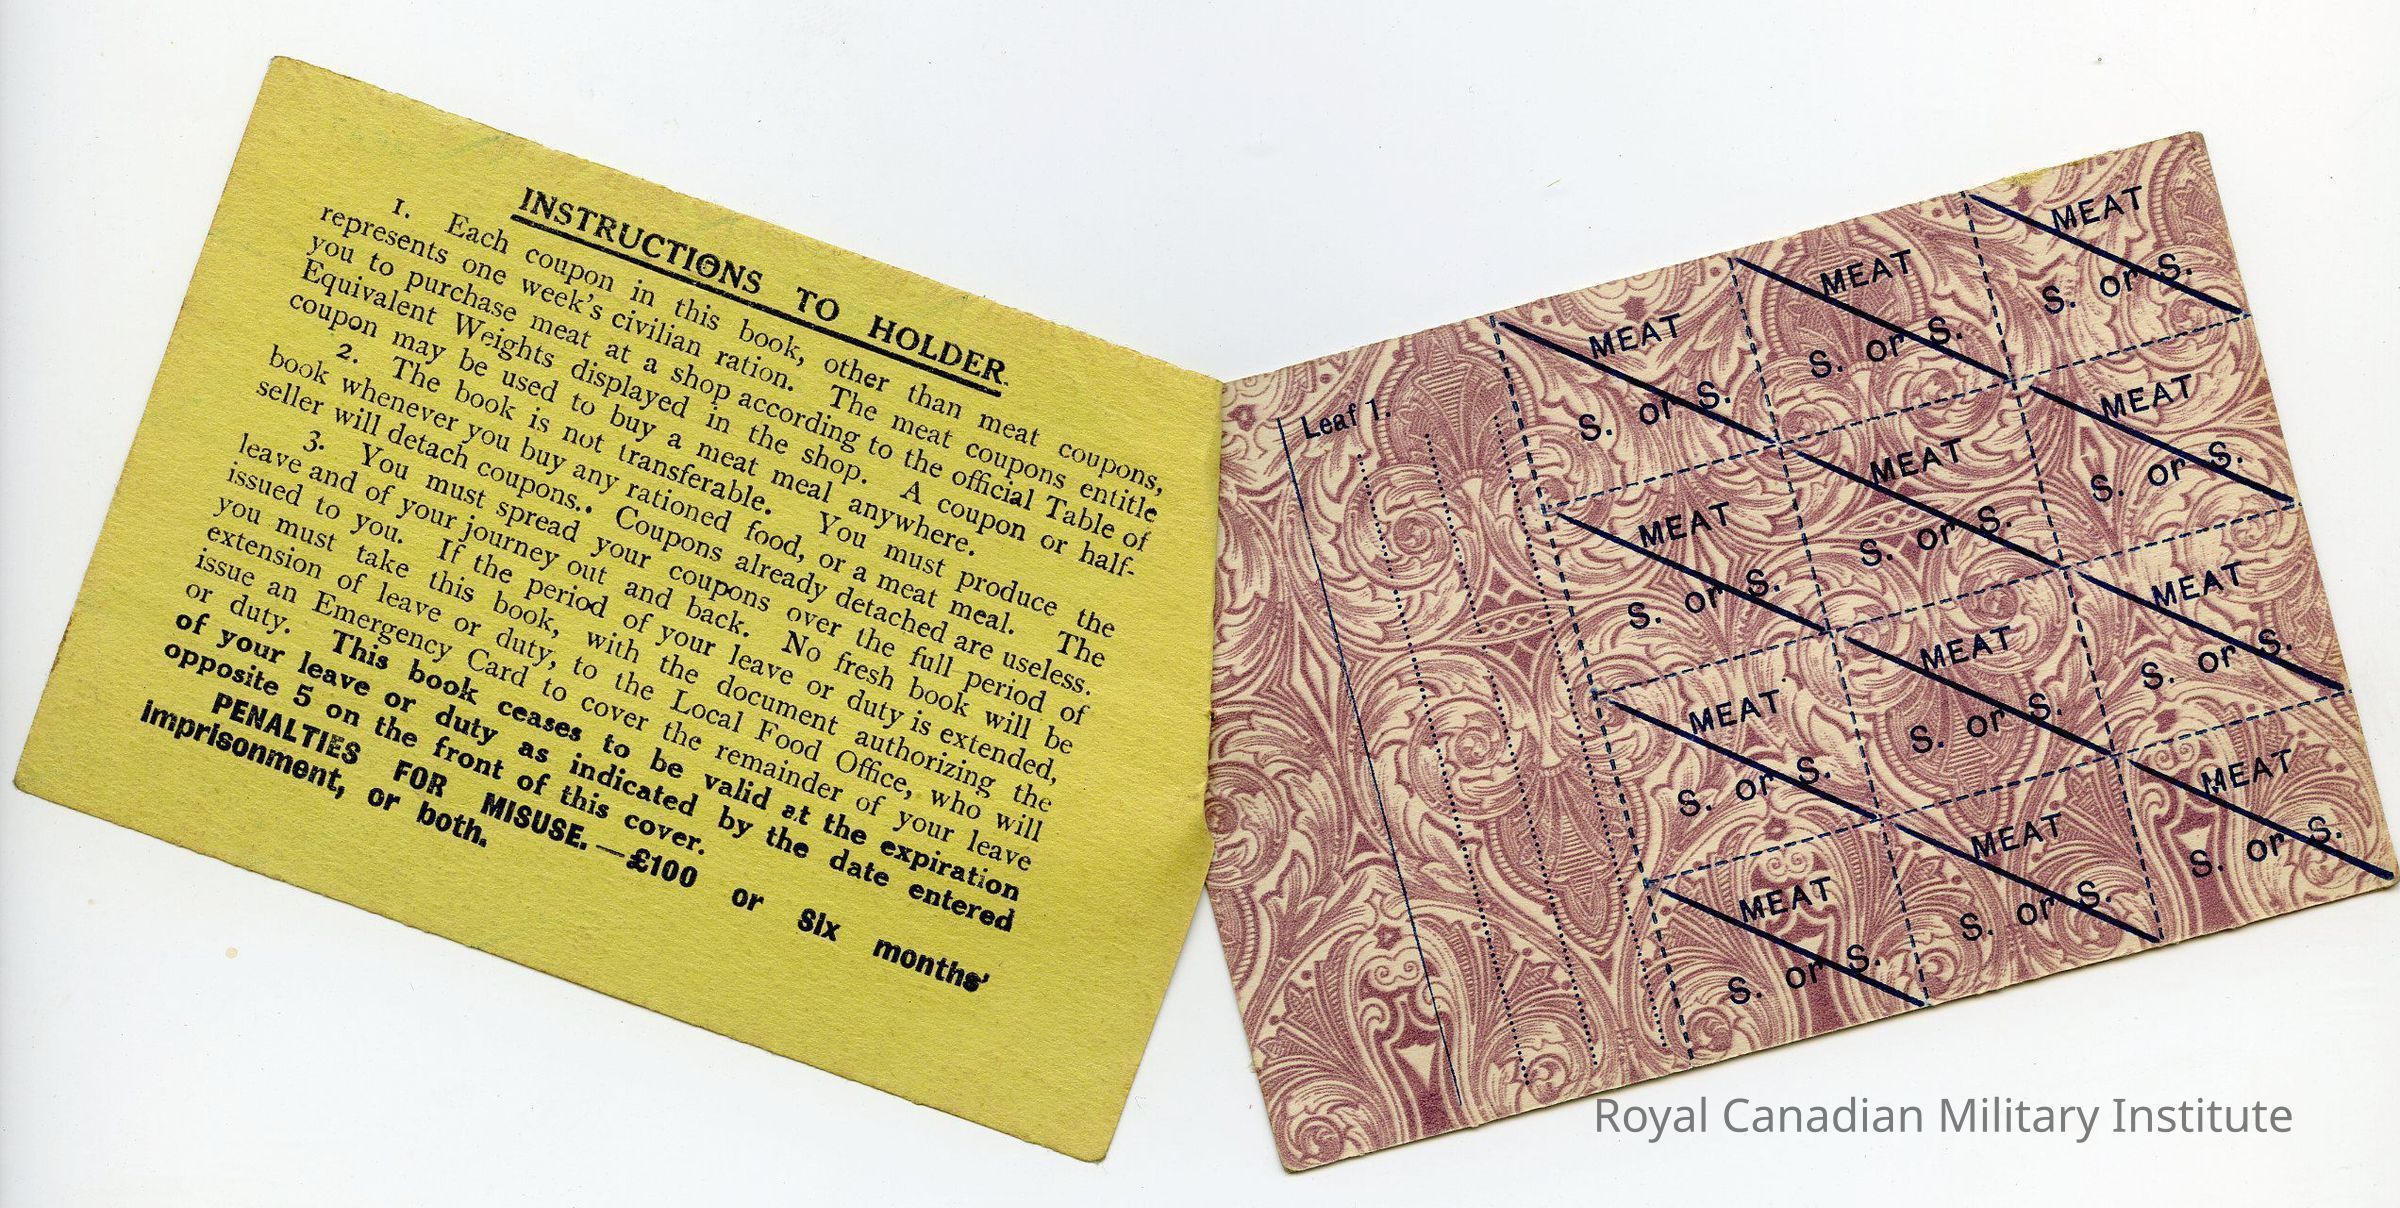 INSTRUCTIONS TO HOLDER.
1. Each coupon in this book, other than meat coupons,
represents one week's civilian ration. The meat coupons entitle
you to purchase meat at a shop according to the official Table of
Equivalent Weights displayed in the shop. A coupon or half-
coupon may be used to buy a meat meal anywhere.
2. The book is not transferable. You must produce the
book whenever you buy any rationed food, or a meat meal. The
seller will detach coupons.. Coupons already detached are useless.
3. You must spread your coupons over the full period of
leave and of your journey out and back. No fresh book will be
issued to you. If the period of your leave or duty is extended,
you must take this book, with the document authorizing the
extension of leave or duty, to the Local Food Office, who will
issue an Emergency Card to cover the remainder of your leave
or duty. This book ceases to be valid at the expiration
of your leave or duty as indicated by the date entered
opposite 5 on the front of this cover.
PENALTIES FOR MISUSE.—£100 or Six months'
imprisonment, or both.
Leaf 1.
MEAT MEAT MEAT
S. or S. S. or S. S. or S.
MEAT MEAT MEAT
S. or S. S. or S. S. or S.
MEAT MEAT MEAT
S. or S. S. or S. S. or S.
MEAT MEAT MEAT
S. or S. S. or S. S. or S.
Royal Canadian Military Institute